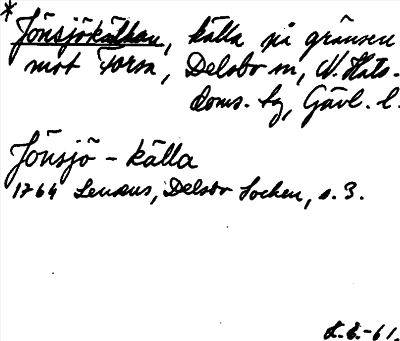 * Jönsjökällan, källa på gränsen
mot Forsa, Delsbo sn, N. Häls-
doms. tg, Gävl. l.
Jönsjö-källa
1764 Lenæus, Delsbo Socken, s. 3.
L.E.-61.